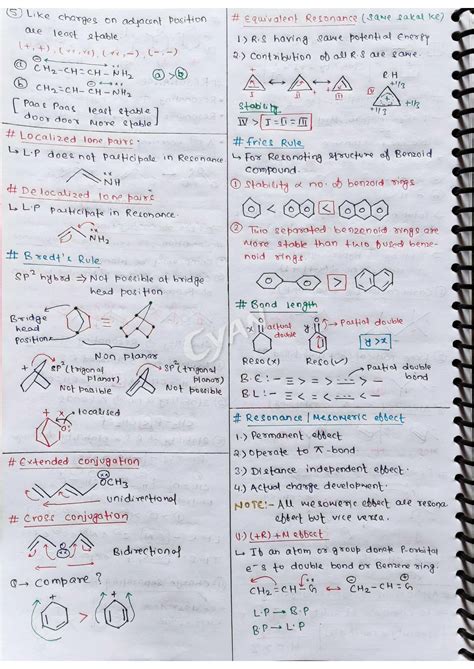 ⑤ Like charges on adjacent position
are least stable
(+,+), (.., ..), (.., -), (-,-)
ⓐ CH2-CH=CH-NH2
ⓐ > ⓑ
ⓑ CH2=CH-CH-NH2
[Paas Paas least stable
door door more stable]
# Localized lone pairs.
↳ L.P does not participate in Resonance.
NH
# Delocalized lone pairs
↳ L.P participate in Resonance.
NH2
# Bredt's Rule
SP2 hybrd ⇒ Not possible at bridge
head position
Bridge
head
position
Non planar
SP2 (trigonal
planar)
Not possible
SP2 (trigonal
planar)
Not possible
localised
# Extended conjugation
OCH3
unidirectional
# Cross conjugation
Bidirectional
Q → Compare ?
>
# Equivalent Resonance (same sakal ke)
1.) R.S having same potential energy
2.) Contribution of all R.S are same.
I II III
R.H
+1/3
+1/3 +1/3
Stability
IV > I = II = III
# fries Rule
↳ For Resonating structure of Benzoid
Compound.
① Stability ∝ no. of benzoid rings
<
② Two separated benzenoid rings are
more stable than two fused benze-
noid rings.
>
# Bond length
x O actual
double
y O → Partial double
y > x
Reso (x) Reso (✓)
Partial double
bond
B.E :- ≡ > = > ⋯ > -
B.L :- ≡ < = < ⋯ < -
# Resonance / Mesomeric effect
1.) Permanent effect
2.) Operate to π-bond
3.) Distance independent effect.
4.) Actual charge development.
NOTE:- All mesomeric effect are resona
effect but vice versa.
(1) (+R) +M effect
↳ If an atom or group donate P-orbital
e-s to double bond or Benzene ring.
CH2=CH-G ↔ CH2-CH=G
L.P → B.P
B.P → L.P
CYAN